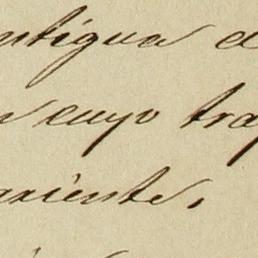 ntigua d
n cuyo tra
ariente,